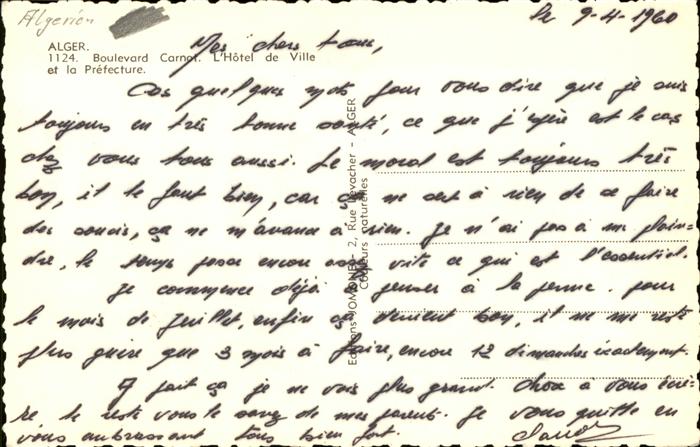 Algerien
le 9-4-1960
ALGER.
1124. Boulevard Carnot. L'Hôtel de Ville
et la Préfecture.
Mes chers tous,
Ces quelques mots pour vous dire que je suis
toujours en très bonne santé, ce que j'espère est le cas
chez vous tous aussi. Le moral est toujours très
bon, il le faut bien, car ça ne sert à rien de se faire
des soucis, ça ne m'avance à rien. Je n'ai pas à me plain-
dre, le temps passe encore assez vite ce qui est l'essentiel.
Je commence déjà à penser à la perme. pour
le mois de Juillet, enfin ça devient bon, il ne me reste
plus guère que 3 mois à faire, encore 12 dimanches exactement.
A part ça je ne vois plus grand chose à vous écri-
re le reste vous le savez de mes parents. Je vous quitte en
vous embrassant tous bien fort.
Editions JOMONE - 2, Rue Levacher - ALGER
Couleurs naturelles